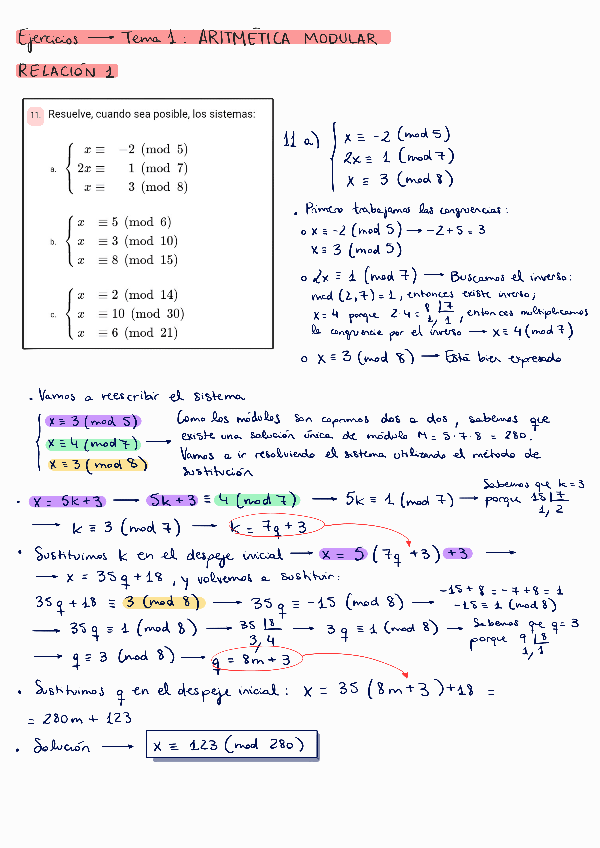 Ejercicios → Tema 1: ARITMÉTICA MODULAR
RELACIÓN 1
11. Resuelve, cuando sea posible, los sistemas:
a. { x ≡ -2 (mod 5)
2x ≡ 1 (mod 7)
x ≡ 3 (mod 8)
b. { x ≡ 5 (mod 6)
x ≡ 3 (mod 10)
x ≡ 8 (mod 15)
c. { x ≡ 2 (mod 14)
x ≡ 10 (mod 30)
x ≡ 6 (mod 21)
11 a) { x ≡ -2 (mod 5)
2x ≡ 1 (mod 7)
x ≡ 3 (mod 8)
• Primero trabajamos las congruencias:
o x ≡ -2 (mod 5) → -2+5 = 3
x ≡ 3 (mod 5)
o 2x ≡ 1 (mod 7) → Buscamos el inverso:
mcd (2,7) = 1, entonces existe inverso;
x = 4 porque 2·4 = 8 |7, entonces multiplicamos
1, 1
la congruencia por el inverso → x ≡ 4 (mod 7)
o x ≡ 3 (mod 8) → Está bien expresado
• Vamos a reescribir el sistema
{ x ≡ 3 (mod 5)
x ≡ 4 (mod 7) →
x ≡ 3 (mod 8)
Como los módulos son coprimos dos a dos, sabemos que
existe una solución única de módulo M = 5·7·8 = 280.
Vamos a ir resolviendo el sistema utilizando el método de
sustitución
• x = 5k+3 → 5k+3 ≡ 4 (mod 7) → 5k ≡ 1 (mod 7) → Sabemos que k = 3
porque 15 |7
1, 2
→ k ≡ 3 (mod 7) → k = 7q + 3
• Sustituimos k en el despeje inicial → x = 5 (7q +3) +3 →
→ x = 35q + 18, y volvemos a sustituir:
35q + 18 ≡ 3 (mod 8) → 35q ≡ -15 (mod 8) → -15 + 8 = -7 + 8 = 1
-15 ≡ 1 (mod 8)
→ 35q ≡ 1 (mod 8) → 35 |8 → 3q ≡ 1 (mod 8) → Sabemos que q = 3
3, 4
porque 9 |8
1, 1
→ q ≡ 3 (mod 8) → q = 8m + 3
• Sustituimos q en el despeje inicial: x = 35 (8m+3) +18 =
= 280m + 123
• Solución → x ≡ 123 (mod 280)